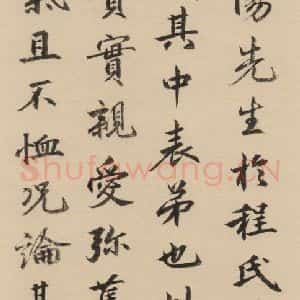 陽先生於程氏
其中表弟也
實親愛弥篤
且不恤况論其
Shufawang.CN